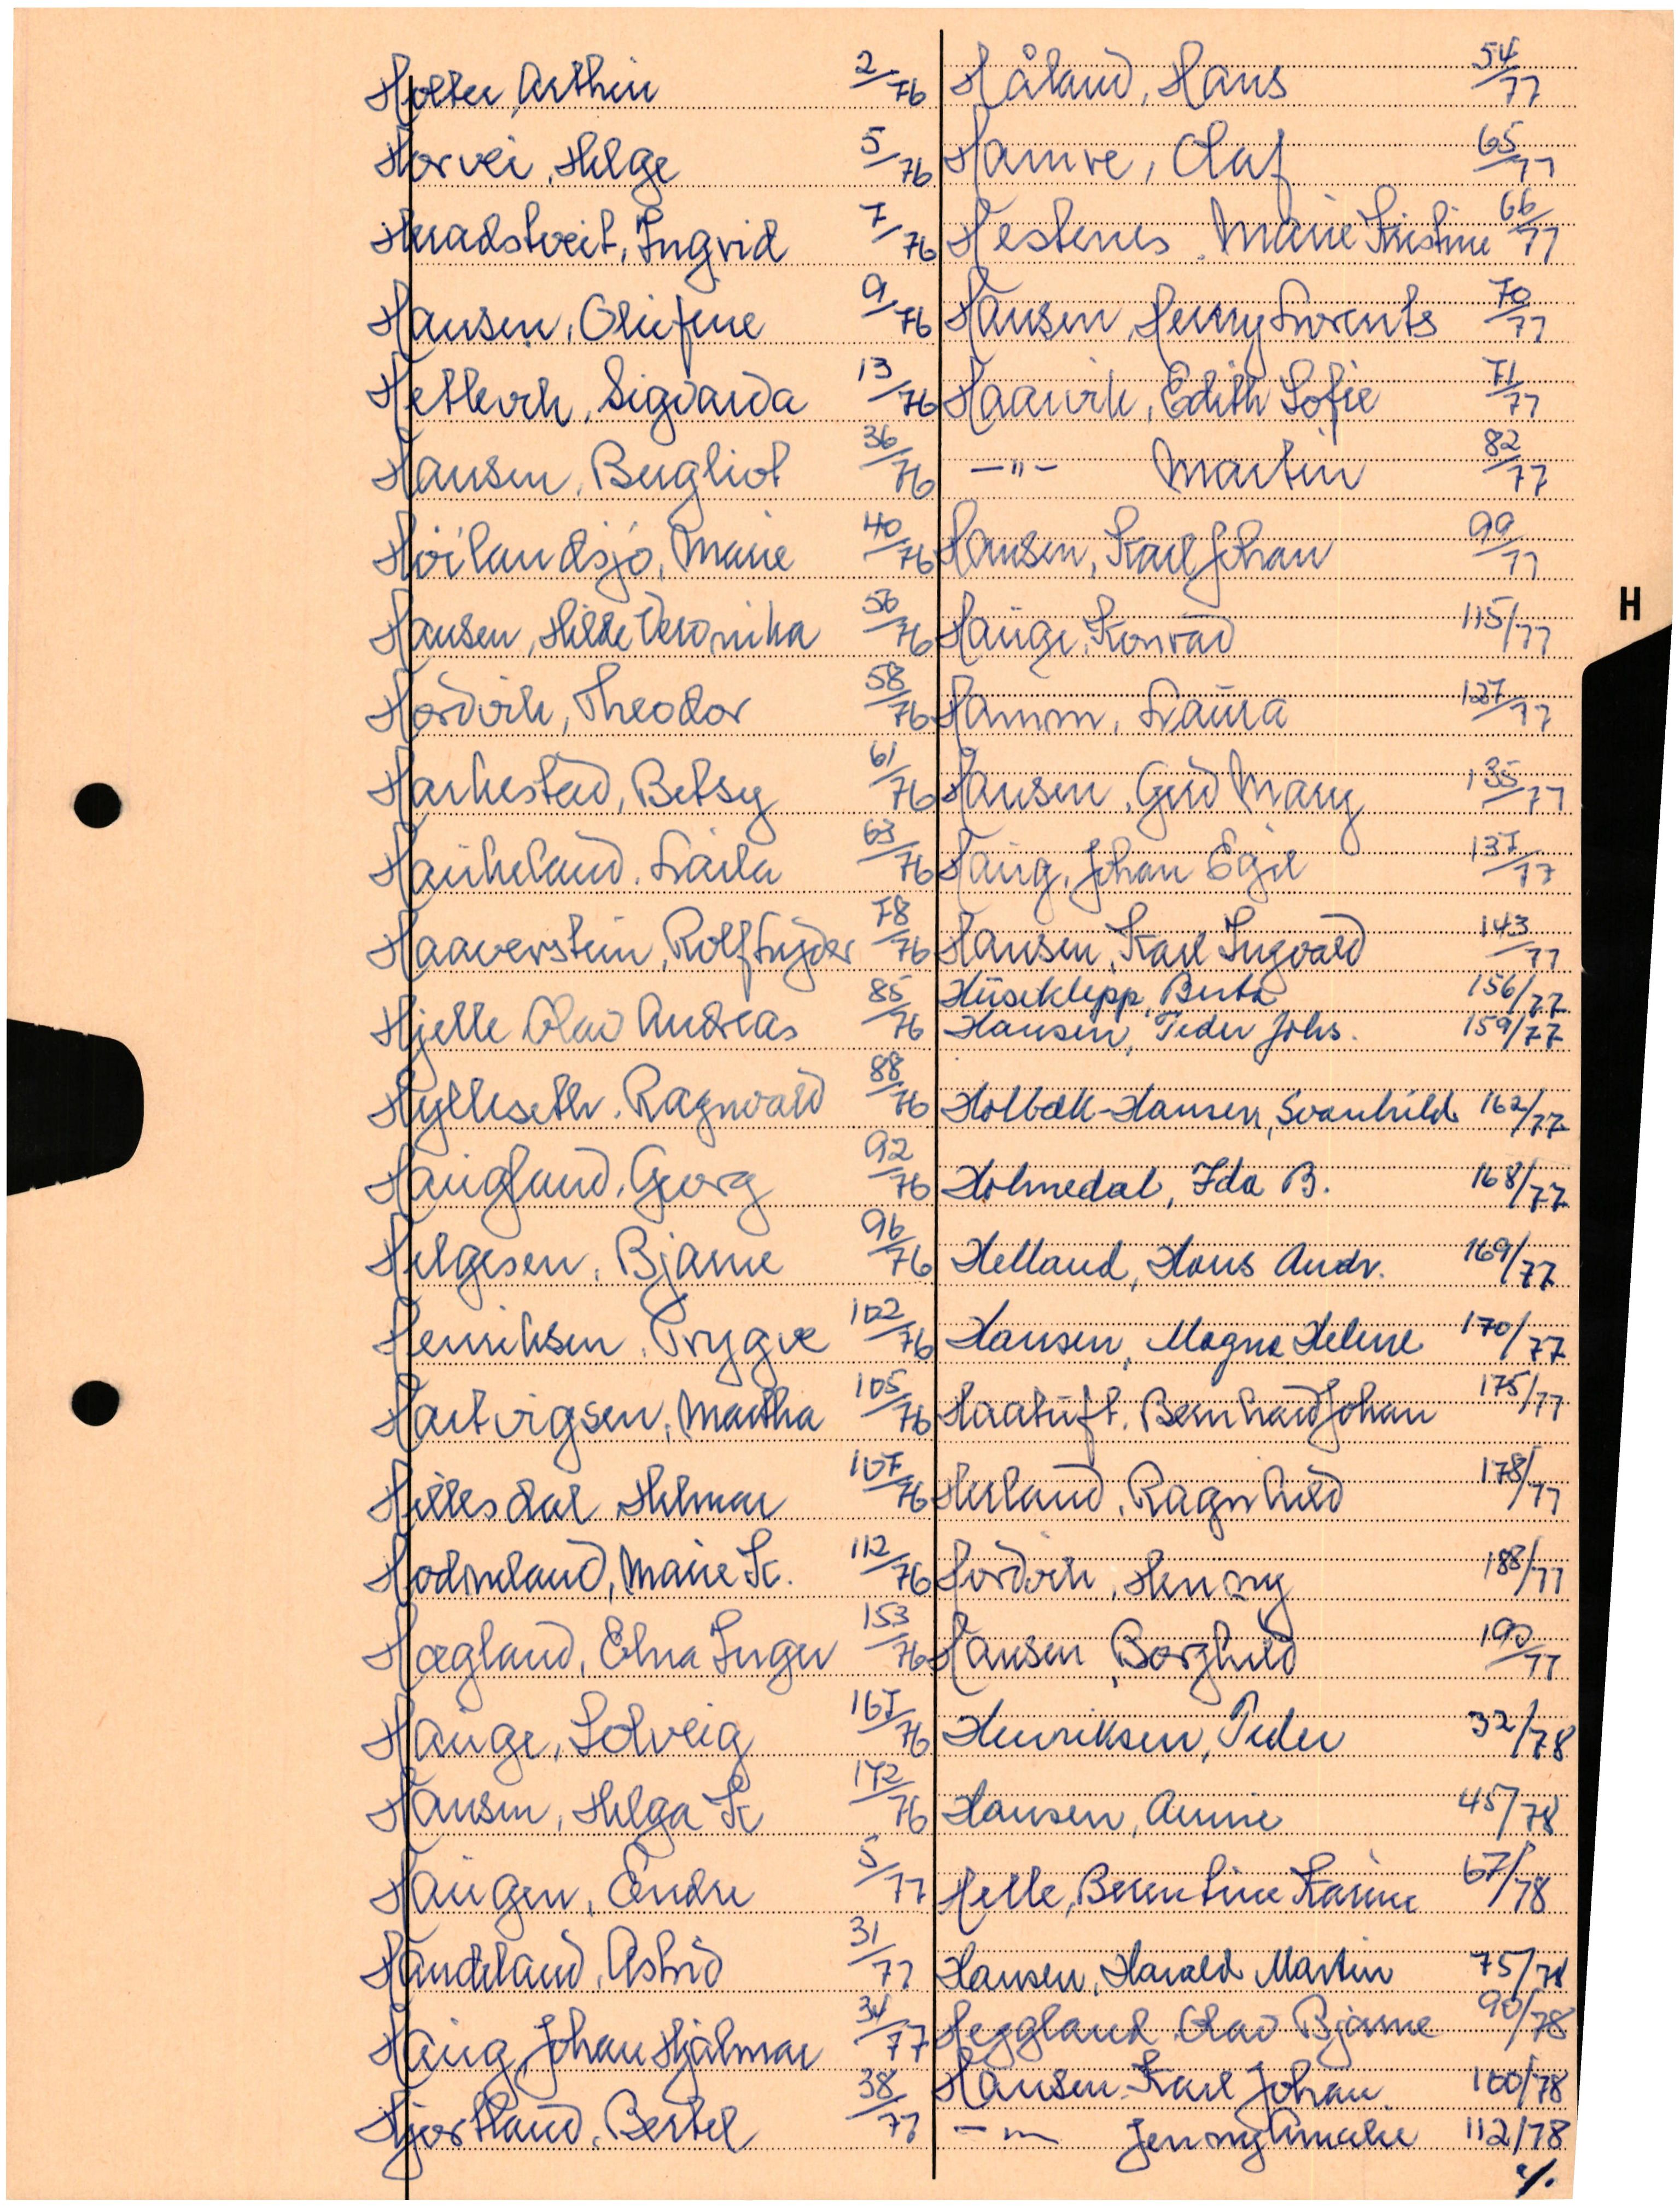 Holter, Arthur 2/76
Horvei, Helge 5/76
Heradstveit, Ingrid 7/76
Hansen, Olufine 9/76
Hetlevik, Sigvarda 13/76
Hansen, Bergliot 36/76
Höilandsjö, Marie 40/76
Hansen, Hilde Veronika 56/76
Hordvik, Theodor 58/76
Harkestad, Betsy 61/76
Haukeland, Laila 63/76
Haaverstein, Rolf Lyder 78/76
Hjelle Olav Andreas 85/76
Hylleseth, Ragnvald 88/76
Haugland, Georg 92/76
Helgesen, Bjarne 96/76
Henriksen, Trygve 102/76
Hartvigsen, Martha 105/76
Hillesdal Helmar 107/76
Hodneland, Marie K. 112/76
Hægland, Elna Inger 153/76
Hauge, Solveig 167/76
Hansen, Helga K 172/76
Haugen, Endre 5/77
Handeland, Astrid 31/77
Haug, Johan Hjalmar 34/77
Hjortland, Bertel 38/77
Håland, Hans 54/77
Hamre, Olaf 65/77
Hestenes, Marie Kristine 66/77
Hansen, Henry Lorents 70/77
Haavik, Edith Sofie 71/77
-"- Martin 82/77
Hansen, Karl Johan 99/77
Hauge, Konrad 115/77
Hamm, Laura 127/77
Hansen, Gerd Mary 135/77
Haug, Johan Egil 137/77
Hansen, Karl Ingvald 143/77
Huseklepp, Berta 156/77
Hansen, Peder Johs. 159/77
Holbæk-Hansen, Svanhild 162/77
Holmedal, Ida B. 168/77
Helland, Hans Andr. 169/77
Hansen, Magna Helene 170/77
Haatuft, Bernhard Johan 175/77
Herland, Ragnhild 178/77
Hordvik, Henny 188/77
Hansen, Borghild 190/77
Henriksen, Peder 32/78
Hansen, Annie 45/78
Helle, Berentine Karine 67/78
Hansen, Harald Martin 75/78
Heggland Olav Bjarne 90/78
Hansen Karl Johan 100/78
-"- Jenny Amalie 112/78
./.
H